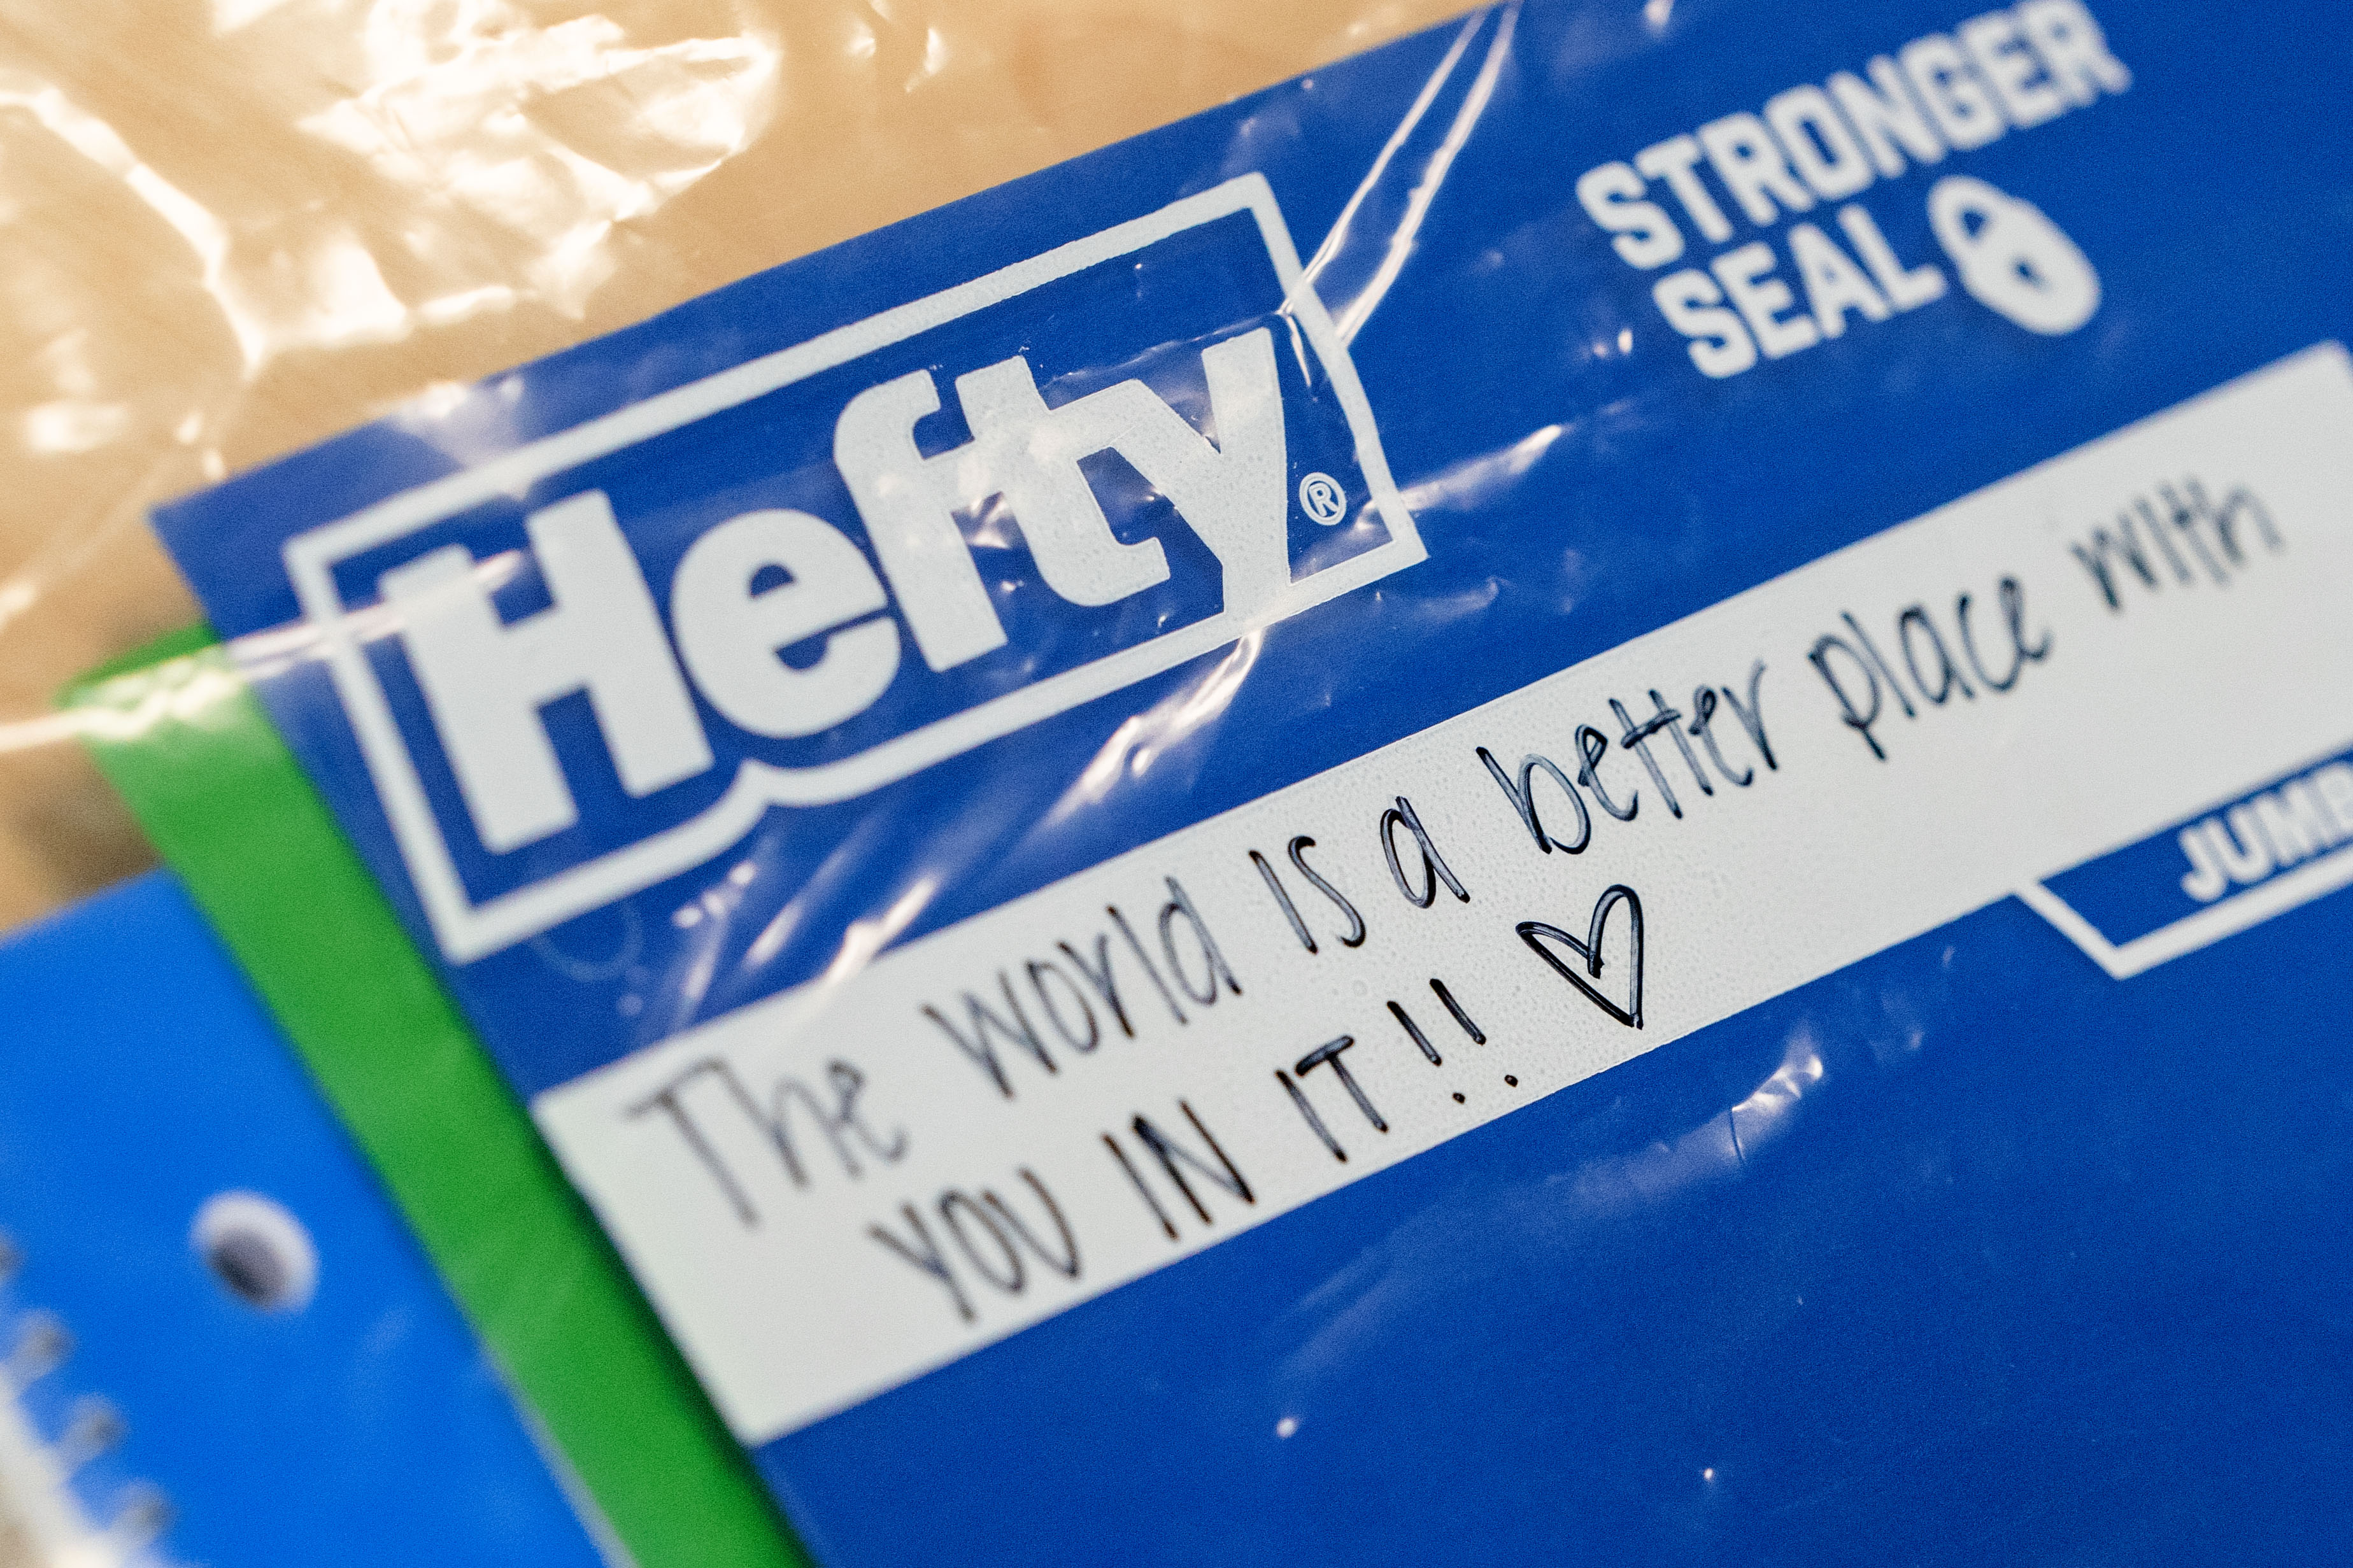 Hefty®
STRONGER
SEAL
The world is a better place with
YOU IN IT!! ♡
JUMB